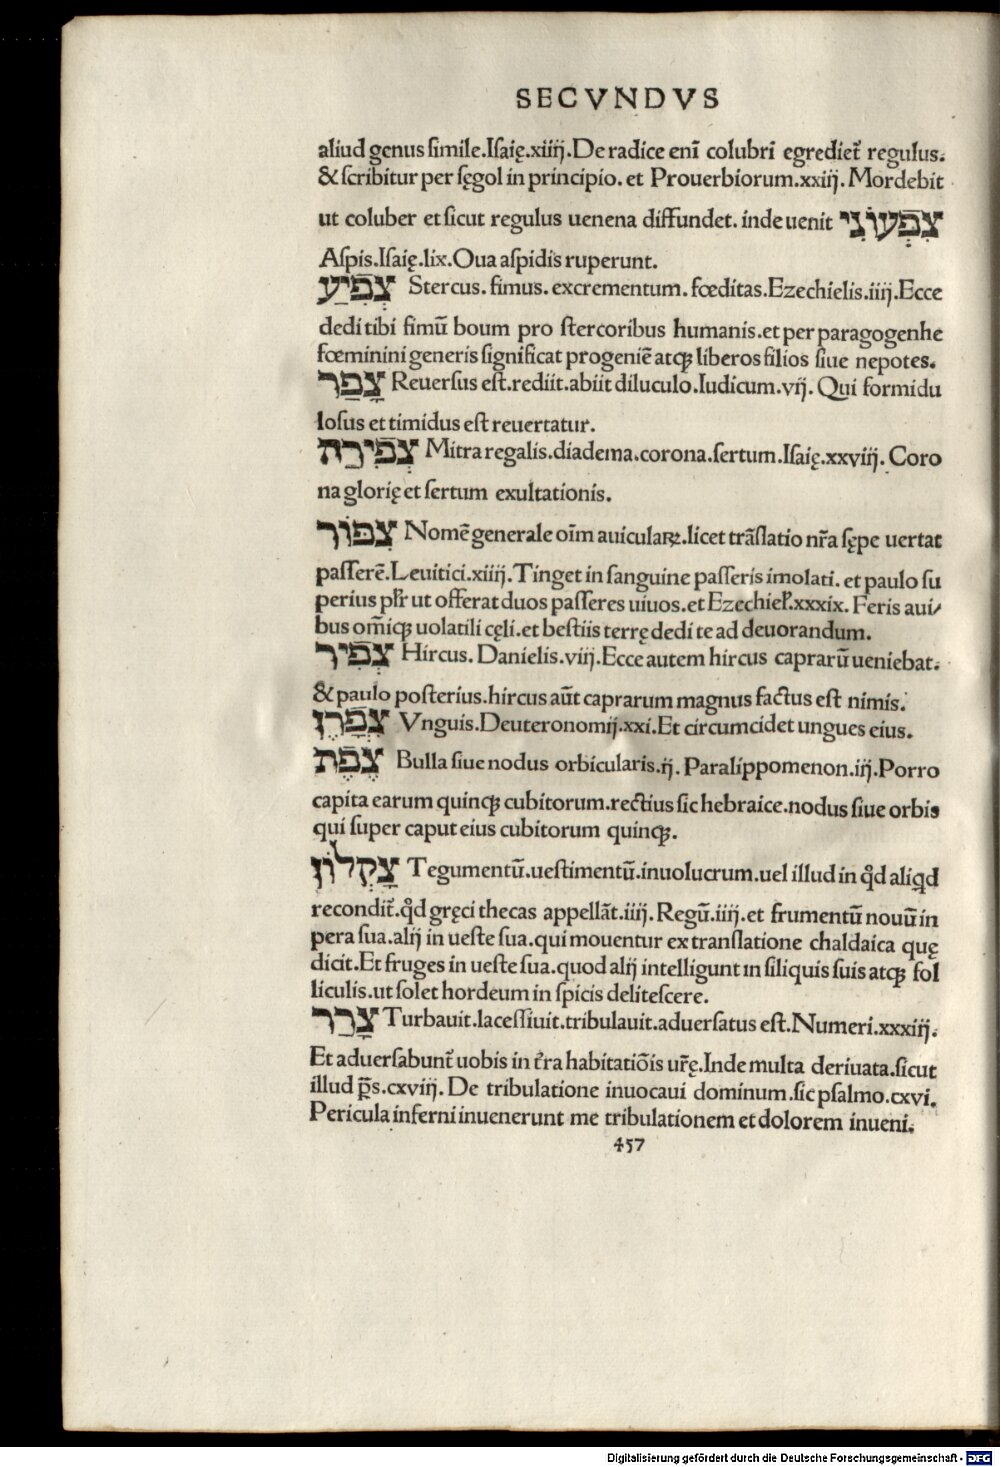 SECVNDVS
aliud genus simile.Isaię.xiiij.De radice enī colubri egrediet᷑ regulus.
& scribitur per sęgol in principio. et Prouerbiorum.xxiij. Mordebit
ut coluber et sicut regulus uenena diffundet. inde uenit צִפְעוֹנִי
Aspis.Isaię.lix.Oua aspidis ruperunt.
צְפִיַע Stercus. fimus. excrementum. fœditas.Ezechielis.iiij.Ecce
dedi tibi fimū boum pro stercoribus humanis.et per paragogenhe
fœminini generis significat progeniē atqꝫ liberos filios siue nepotes.
צָפַר Reuersus est.rediit.abiit diluculo.Iudicum.vij. Qui formidu
losus et timidus est reuertatur.
צְפִירַה Mitra regalis.diadema.corona.sertum.Isaię.xxviij. Coro
na glorię et sertum exultationis.
צִפּוֹר Nomē generale oīm auiculaꝝ.licet trāslatio nr̄a sępe uertat
passerē.Leuitici.xiiij.Tinget in sanguine passeris imolati. et paulo su
perius pl̄r ut offerat duos passeres uiuos.et Ezechiel̓.xxxix. Feris aui/
bus om̄iqꝫ uolatili cęli.et bestiis terrę dedi te ad deuorandum.
צְפִיר Hircus. Danielis.viij.Ecce autem hircus caprarū ueniebat.
& paulo posterius.hircus aūt caprarum magnus factus est nimis.
צְפָרֶן Vnguis.Deuteronomij.xxi.Et circumcidet ungues eius.
צֶפֶת Bulla siue nodus orbicularis.ij. Paralippomenon.iij.Porro
capita earum quinqꝫ cubitorum.rectius sic hebraice.nodus siue orbis
qui super caput eius cubitorum quinqꝫ.
צָקְלוֹן Tegumentū.uestimentū.inuolucrum.uel illud in qd̄ aliqd
recondit᷑.qd̄ gręci thecas appellāt.iiij. Regū.iiij.et frumentū nouū in
pera sua.alij in ueste sua.qui mouentur ex translatione chaldaica quę
dicit.Et fruges in ueste sua.quod alij intelligunt in siliquis suis atqꝫ fol
liculis.ut solet hordeum in spicis delitescere.
צָרַר Turbauit.lacessiuit.tribulauit.aduersatus est.Numeri.xxxiij.
Et aduersabunt᷑ uobis in t̄ra habitatiōis ur̄ę.Inde multa deriuata.sicut
illud p̄s.cxviij. De tribulatione inuocaui dominum.sic psalmo.cxvi.
Pericula inferni inuenerunt me tribulationem et dolorem inueni.
457
Digitalisierung gefördert durch die Deutsche Forschungsgemeinschaft - DFG